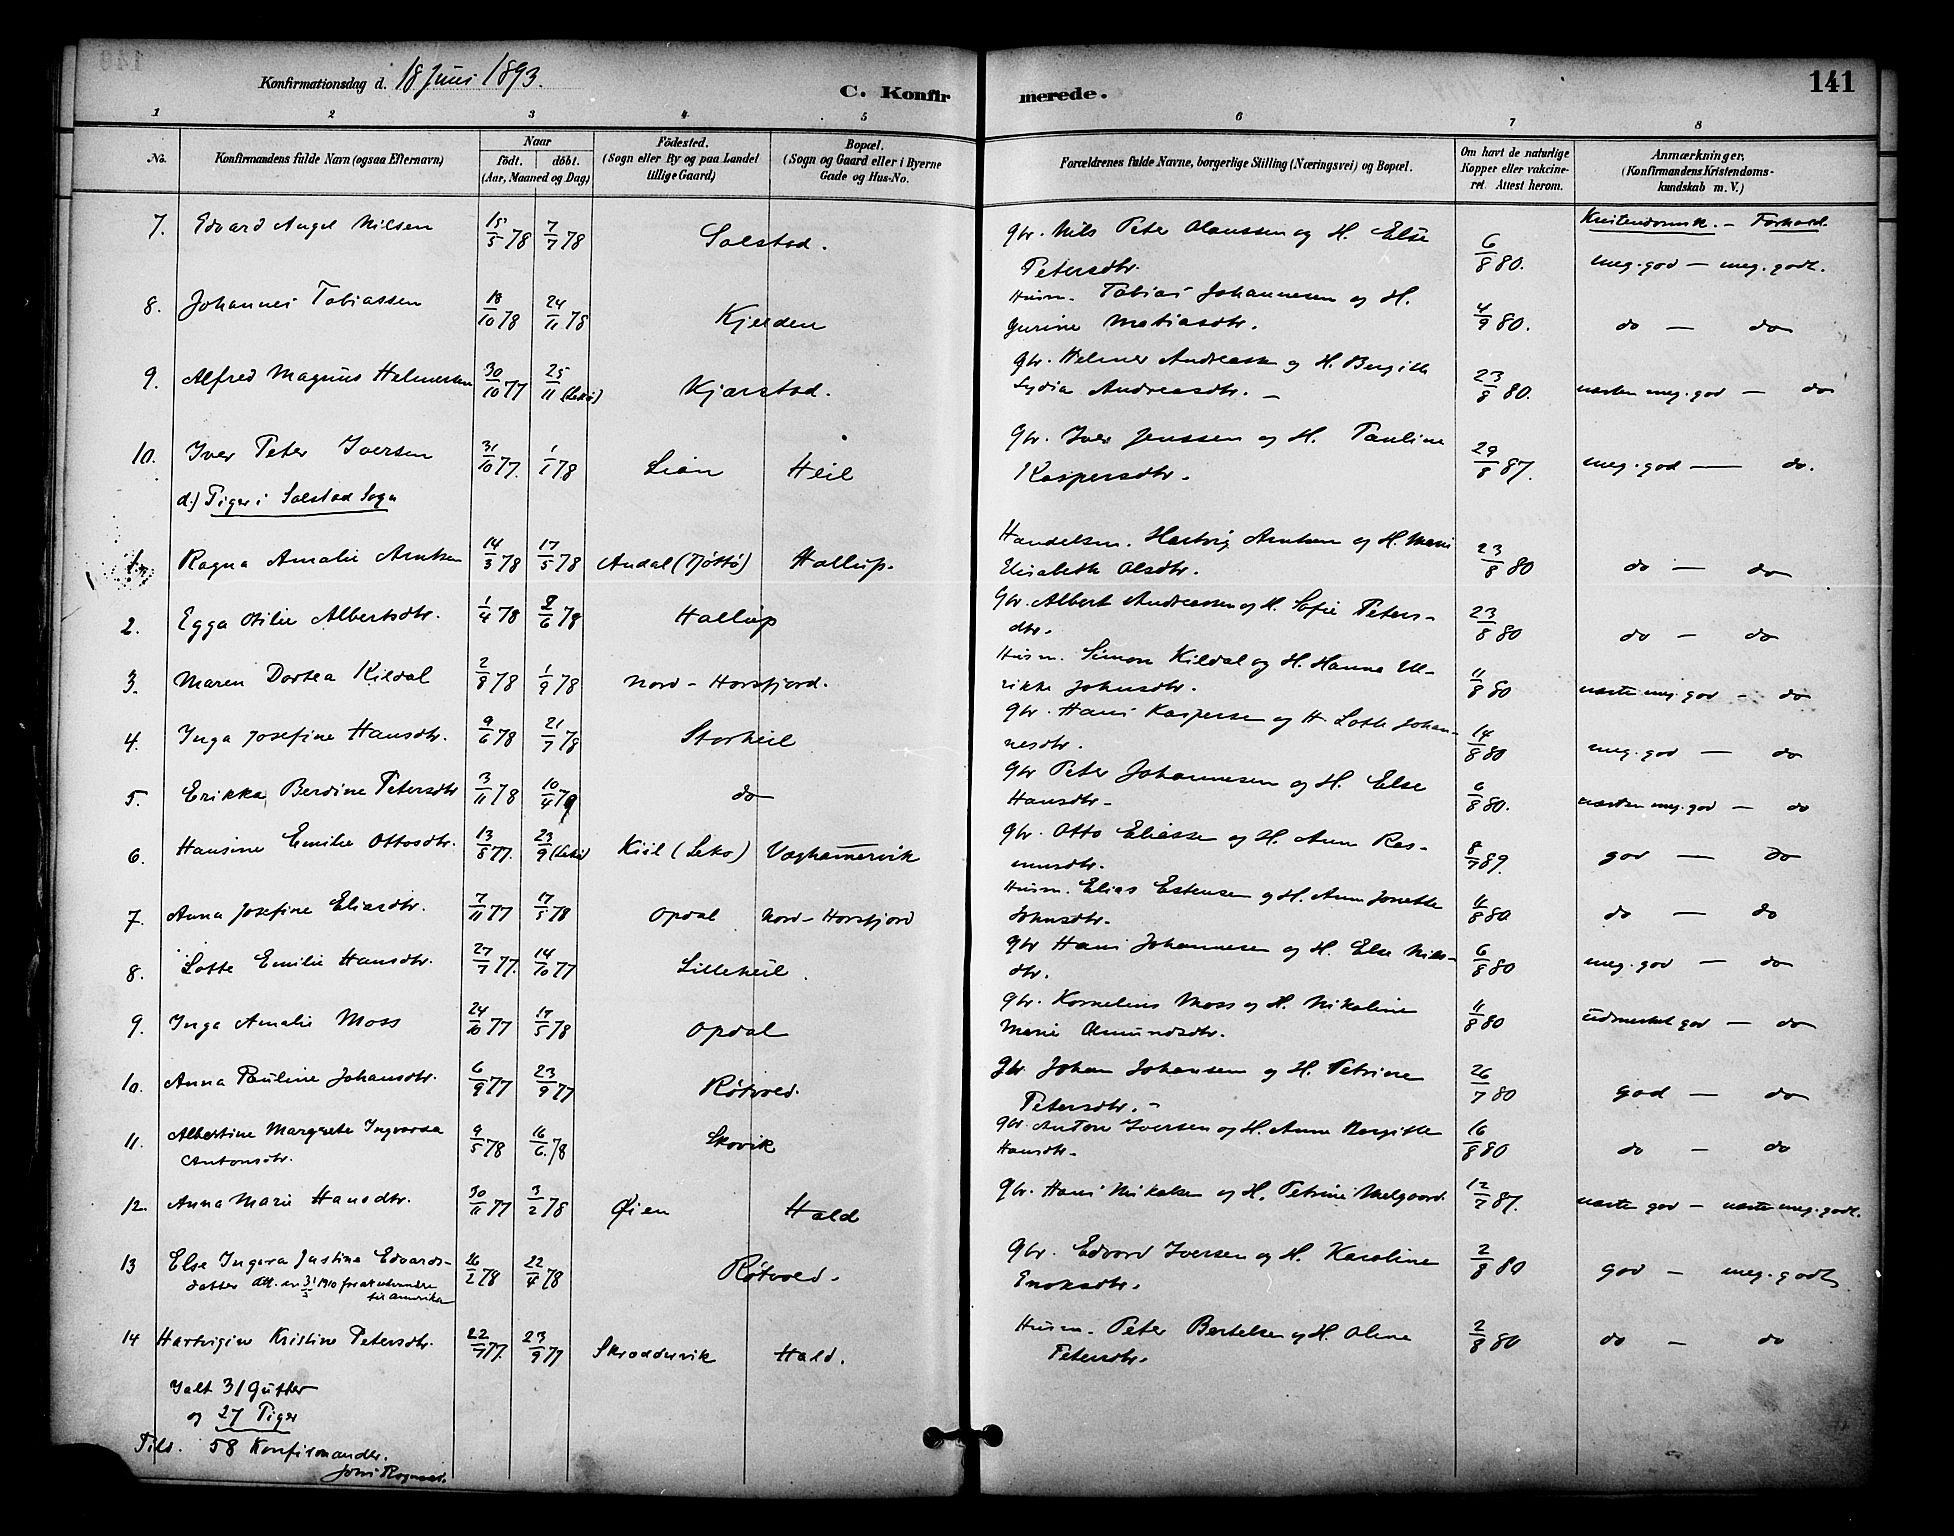 141
Konfirmationsdag d. 18 Juni 1893.
C. Konfirmerede.
1 2 3 4 5 6 7 8
No. Konfirmandens fulde Navn (ogsaa Efternavn) Naar født. døbt. (Aar, Maaned og Dag) Födested. (Sogn eller By og paa Landet tillige Gaard) Bopæl. (Sogn og Gaard eller i Byerne Gade og Hus-No. Forældrenes fulde Navne, borgerlige Stilling (Næringsvei) og Bopæl. Om havt de naturlige Kopper eller vakcineret. Attest herom. Anmærkninger. (Konfirmandens Kristendomskundskab m. V.)
Kristendomsk. - Forhold.
7. Edvard Angel Nilsen 15/5 78 7/7 78 Solstad. Gbr. Nils Peter Olaussen og H. Else
Petersdtr. 6/8 80. meg. god - meg. godt.
8. Johannes Tobiassen 18/10 78 24/11 78 Kjelden Husm. Tobias Johannesen og H.
Gurine Matiasdtr. 4/9 80. do - do
9. Alfred Magnus Helmersen 30/10 77 25/11 (Lekø) Kjærstad. Gbr. Helmer Andreassen og H. Bergitte
Lydia Andreasdtr. - 23/8 80. næsten meg. god - do
10. Iver Peter Iversen 31/10 77. 1/1 78 Lian Heil Gbr. Iver Jenssen og H. Pauline
Kaspersdtr. 29/8 87. meg. god - do.
d.) Piger i Solstad Sogn
1. Ragna Amalie Arntsen 14/3 78 17/5 78 Andal (Tjøttø) Hallup. Handelsm. Hartvig Arntsen og H. Marie
Elisabeth Olsdtr. 23/8 80 do - do
2. Egga Otilie Albertsdtr. 1/4 78 8/6 78 Hallup Gbr. Albert Andreassen og H. Sofie Peters-
dtr. 23/8 80 do - do
3. Maren Dortea Kildal 2/8 78 1/9 78 Nord-Horsfjord. Husm. Simon Kildal og H. Hanna Ul-
rikke Johnsdtr. 11/8 80 næsten meg. god - do
4. Inga Josefine Hansdtr. 9/6 78 21/7 78 Storheil Gbr. Hans Kaspersen og H. Lotte Johan-
nesdtr. 14/8 80 meg. god - do
5. Erikka Berdine Petersdtr 3/11 78 10/4 79 do Gbr Peter Johannesen og H. Else
Hansdtr. 6/8 80. næsten meg. god - do
6. Hansine Emilie Ottosdtr. 13/8 77. 23/9 (Lekø) Kiil (Lekø) Vaghamervik Gbr. Otto Eliassen og H. Anne Ras-
musdtr. 8/7 89. god - do
7. Anna Josefine Eliasdtr. 7/11 77 17/5 78 Opdal Nord-Horsfjord Husm. Elias Estensen og H. Anne Jonette
Johnsdtr. 11/8 80 do - do
8. Lotte Emilie Hansdtr. 27/7 77. 14/10 77 Lilleheil. Gbr Hans Johannesen og H. Else Nils-
dtr. 6/8 80 meg. god - do
9. Inga Amalie Moss 24/10 77 17/5 78 Opdal Gbr. Kornelius Moss og H. Nikoline
Marie Amundsdtr. 11/8 80 udmerket god - do
10. Anna Pauline Johansdtr. 6/9 77 23/9 77 Røtvold. Gbr. Johan Johansen og H. Petrine
Petersdtr. - 26/7 80 god - do
11. Albertine Margrete Ingvarda
Antonsdtr. 9/5 78 16/6 78 Skovik Gbr. Anton Iversen og H. Anne Bergitte
Hansdtr. 16/8 80 do - do
12. Anna Marie Hansdtr. 30/11 77 3/2 78 Øien Hald Gbr. Hans Nikolsen og H. Petrine Melgaard 12/7 87. næsten god - næsten meg. godt.
13 Else Ingera Justine Edvards-
datter Att. av 3/3 1910 for at utvandre
til Amerika 26/2 78 22/4 78 Røtvold. Gbr. Edvard Iversen og H. Karoline
Enoksdtr. 2/8 80 god - meg. godt
14 Hartvigine Kristine Petersdtr. 22/7 77. 23/9 77 Skroddervik Hald. Husm. Peter Bertelsen og H. Oline
Petersdtr. 2/8 80 do - do
Ialt 31 Gutter
og 27 Piger
Tils. 58 Konfirmander.